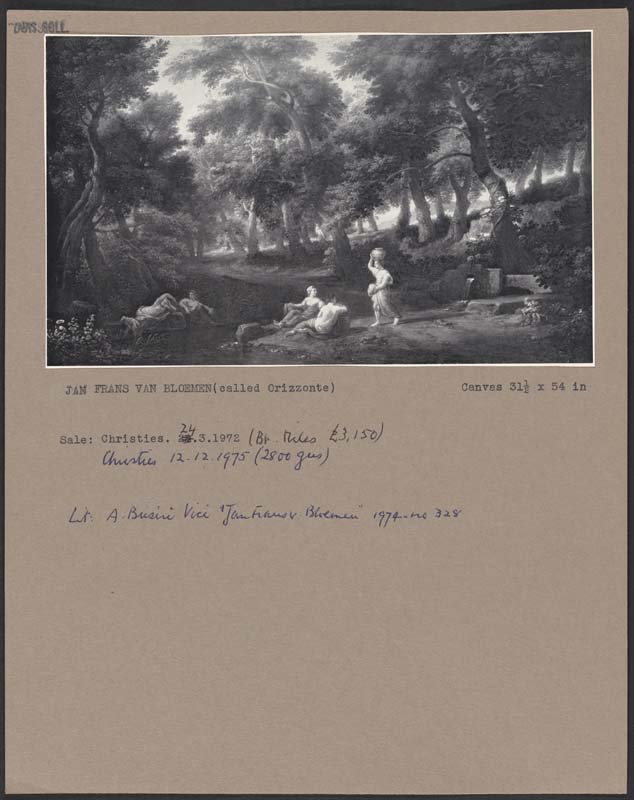 JAN FRANS VAN BLOEMEN(called Orizzonte)
Canvas 31½ x 54 in
Sale: Christies. 24.3.1972 (Bt. Miles £3,150)
Christies 12.12.1975 (2800 gns)
Lit: A. Busiri Vici "Jan Frans v. Bloemen" 1974 - no 328